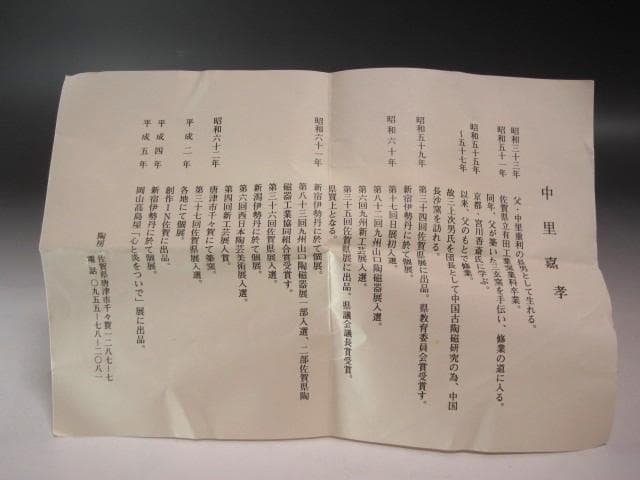 中里嘉孝
昭和三十三年 父・中里重利の長男として生れる。
昭和五十一年 佐賀県立有田工業窯業科卒業。
同年、父が築いた三玄窯を手伝い、修業の道に入る。
昭和五十五年 京都・宮川香齋氏に学ぶ。
〜五十七年 以来、父のもとで修業。
故三上次男氏を団長として中国古陶磁研究の為、中国
長沙窯を訪れる。
昭和五十九年 第三十四回佐賀県展に出品。県教育委員会賞受賞す。
新宿伊勢丹に於て個展。
第十七回日展初入選。
昭和六十年 第八十二回九州山口陶磁器展入選。
第六回九州新工芸入選。
第三十五回佐賀県展に出品。県議会議長賞受賞。
県買上となる。
昭和六十一年 新宿伊勢丹に於て個展。
第八十三回九州山口陶磁器展一部入選、二部佐賀県陶
磁器工業協同組合賞受賞す。
第三十六回佐賀県展入選。
新潟伊勢丹に於て個展。
第六回西日本陶芸美術展入選。
第四回新工芸展入賞。
昭和六十二年 唐津市千々賀にて築窯。
第三十七回佐賀県展入選。
平成二年 各地にて個展。
創作IN佐賀に出品。
平成四年 新宿伊勢丹に於て個展。
平成五年 岡山高島屋「心と炎をついで」展に出品。
陶房 佐賀県唐津市千々賀一二八七―七
電話〇九五五―七八―二〇八一